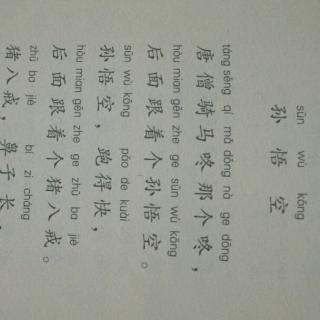 sūn wù kōng
孙悟空
táng sēng qí mǎ dōng nà ge dōng
唐僧骑马咚那个咚，
hòu mian gēn zhe ge sūn wù kōng
后面跟着个孙悟空。
sūn wù kōng pǎo de kuài
孙悟空，跑得快，
hòu mian gēn zhe ge zhū ba jiè
后面跟着个猪八戒。
zhū ba jiè bí zi cháng
猪八戒，鼻子长，